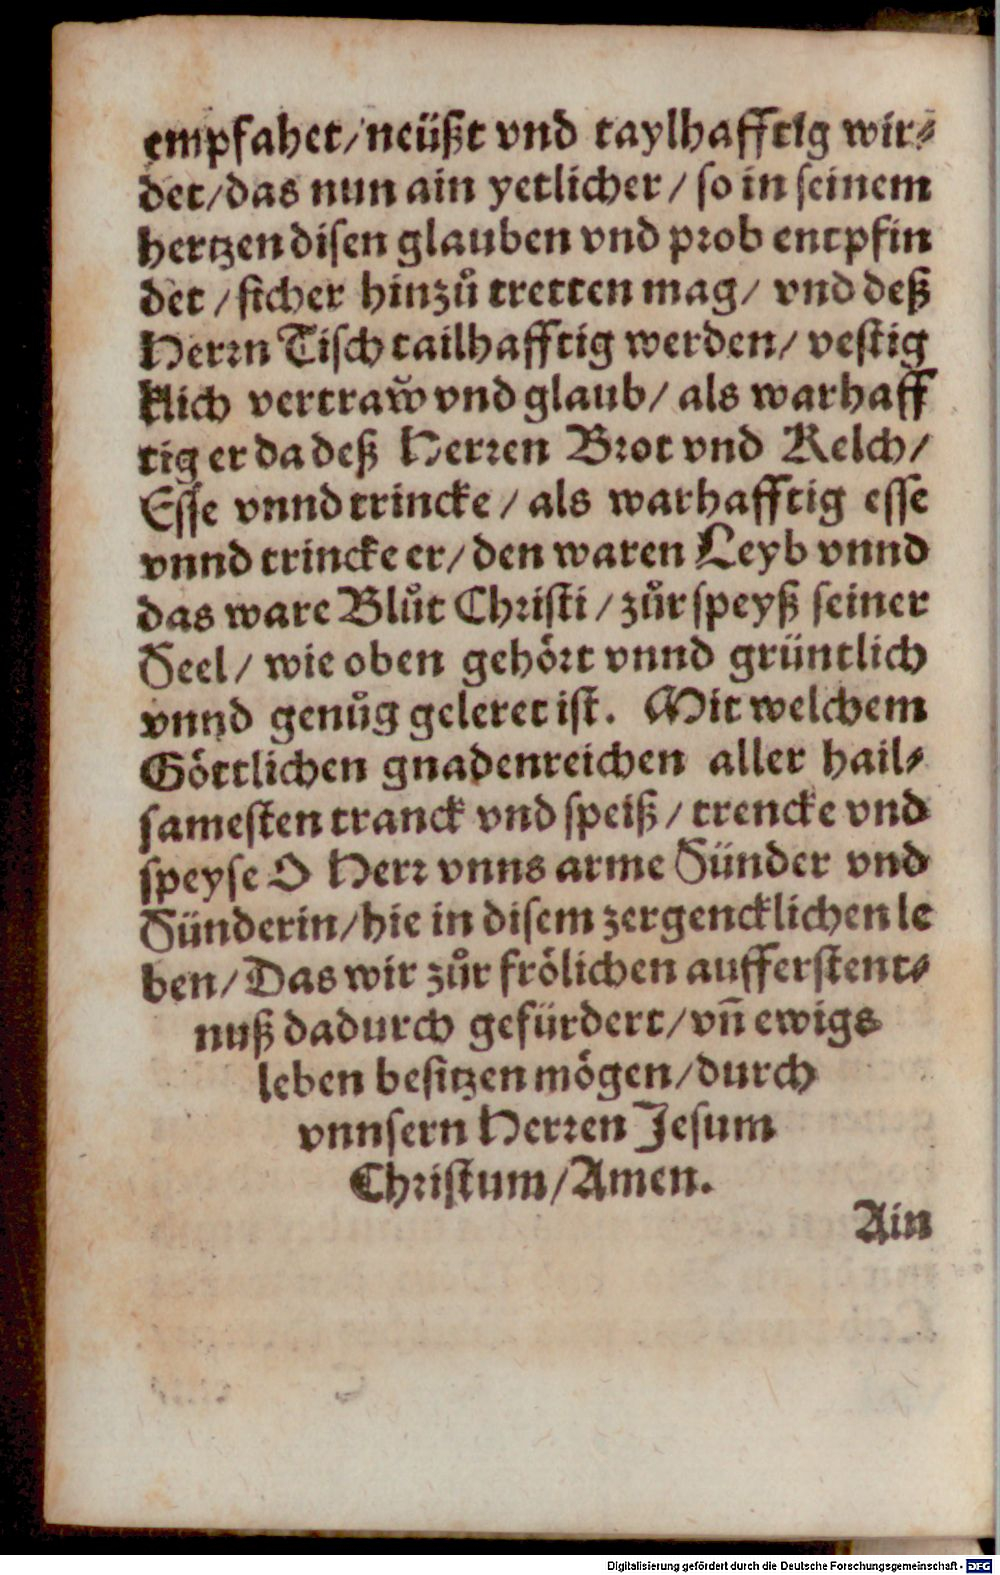 empfahet/ neüßt vnd taylhafftig wir⸗
det/ das nun ain yetlicher/ so in seinem
hertzen disen glauben vnd prob entpfin
det/ sicher hinzů tretten mag/ vnd deß
Herrn Tisch tailhafftig werden/ vestig
klich vertraw̃ vnd glaub/ als warhaff
tig er da deß Herren Brot vnd Kelch/
Esse vnnd trincke/ als warhafftig esse
vnnd trincke er/ den waren Leyb vnnd
das ware Blůt Christi/ zůr speyß seiner
Seel/ wie oben gehört vnnd grüntlich
vnnd genůg geleret ist. Mit welchem
Göttlichen gnadenreichen aller hail⸗
samesten tranck vnd speiß/ trencke vnd
speyse O Herr vnns arme Sünder vnd
Sünderin/ hie in disem zergencklichen le
ben/ Das wir zůr frölichen aufferstent⸗
nuß dadurch gefürdert/ vñ ewigs
leben besitzen mögen/ durch
vnnsern Herren Jesum
Christum/ Amen.
Ain
Digitalisierung gefördert durch die Deutsche Forschungsgemeinschaft - DFG